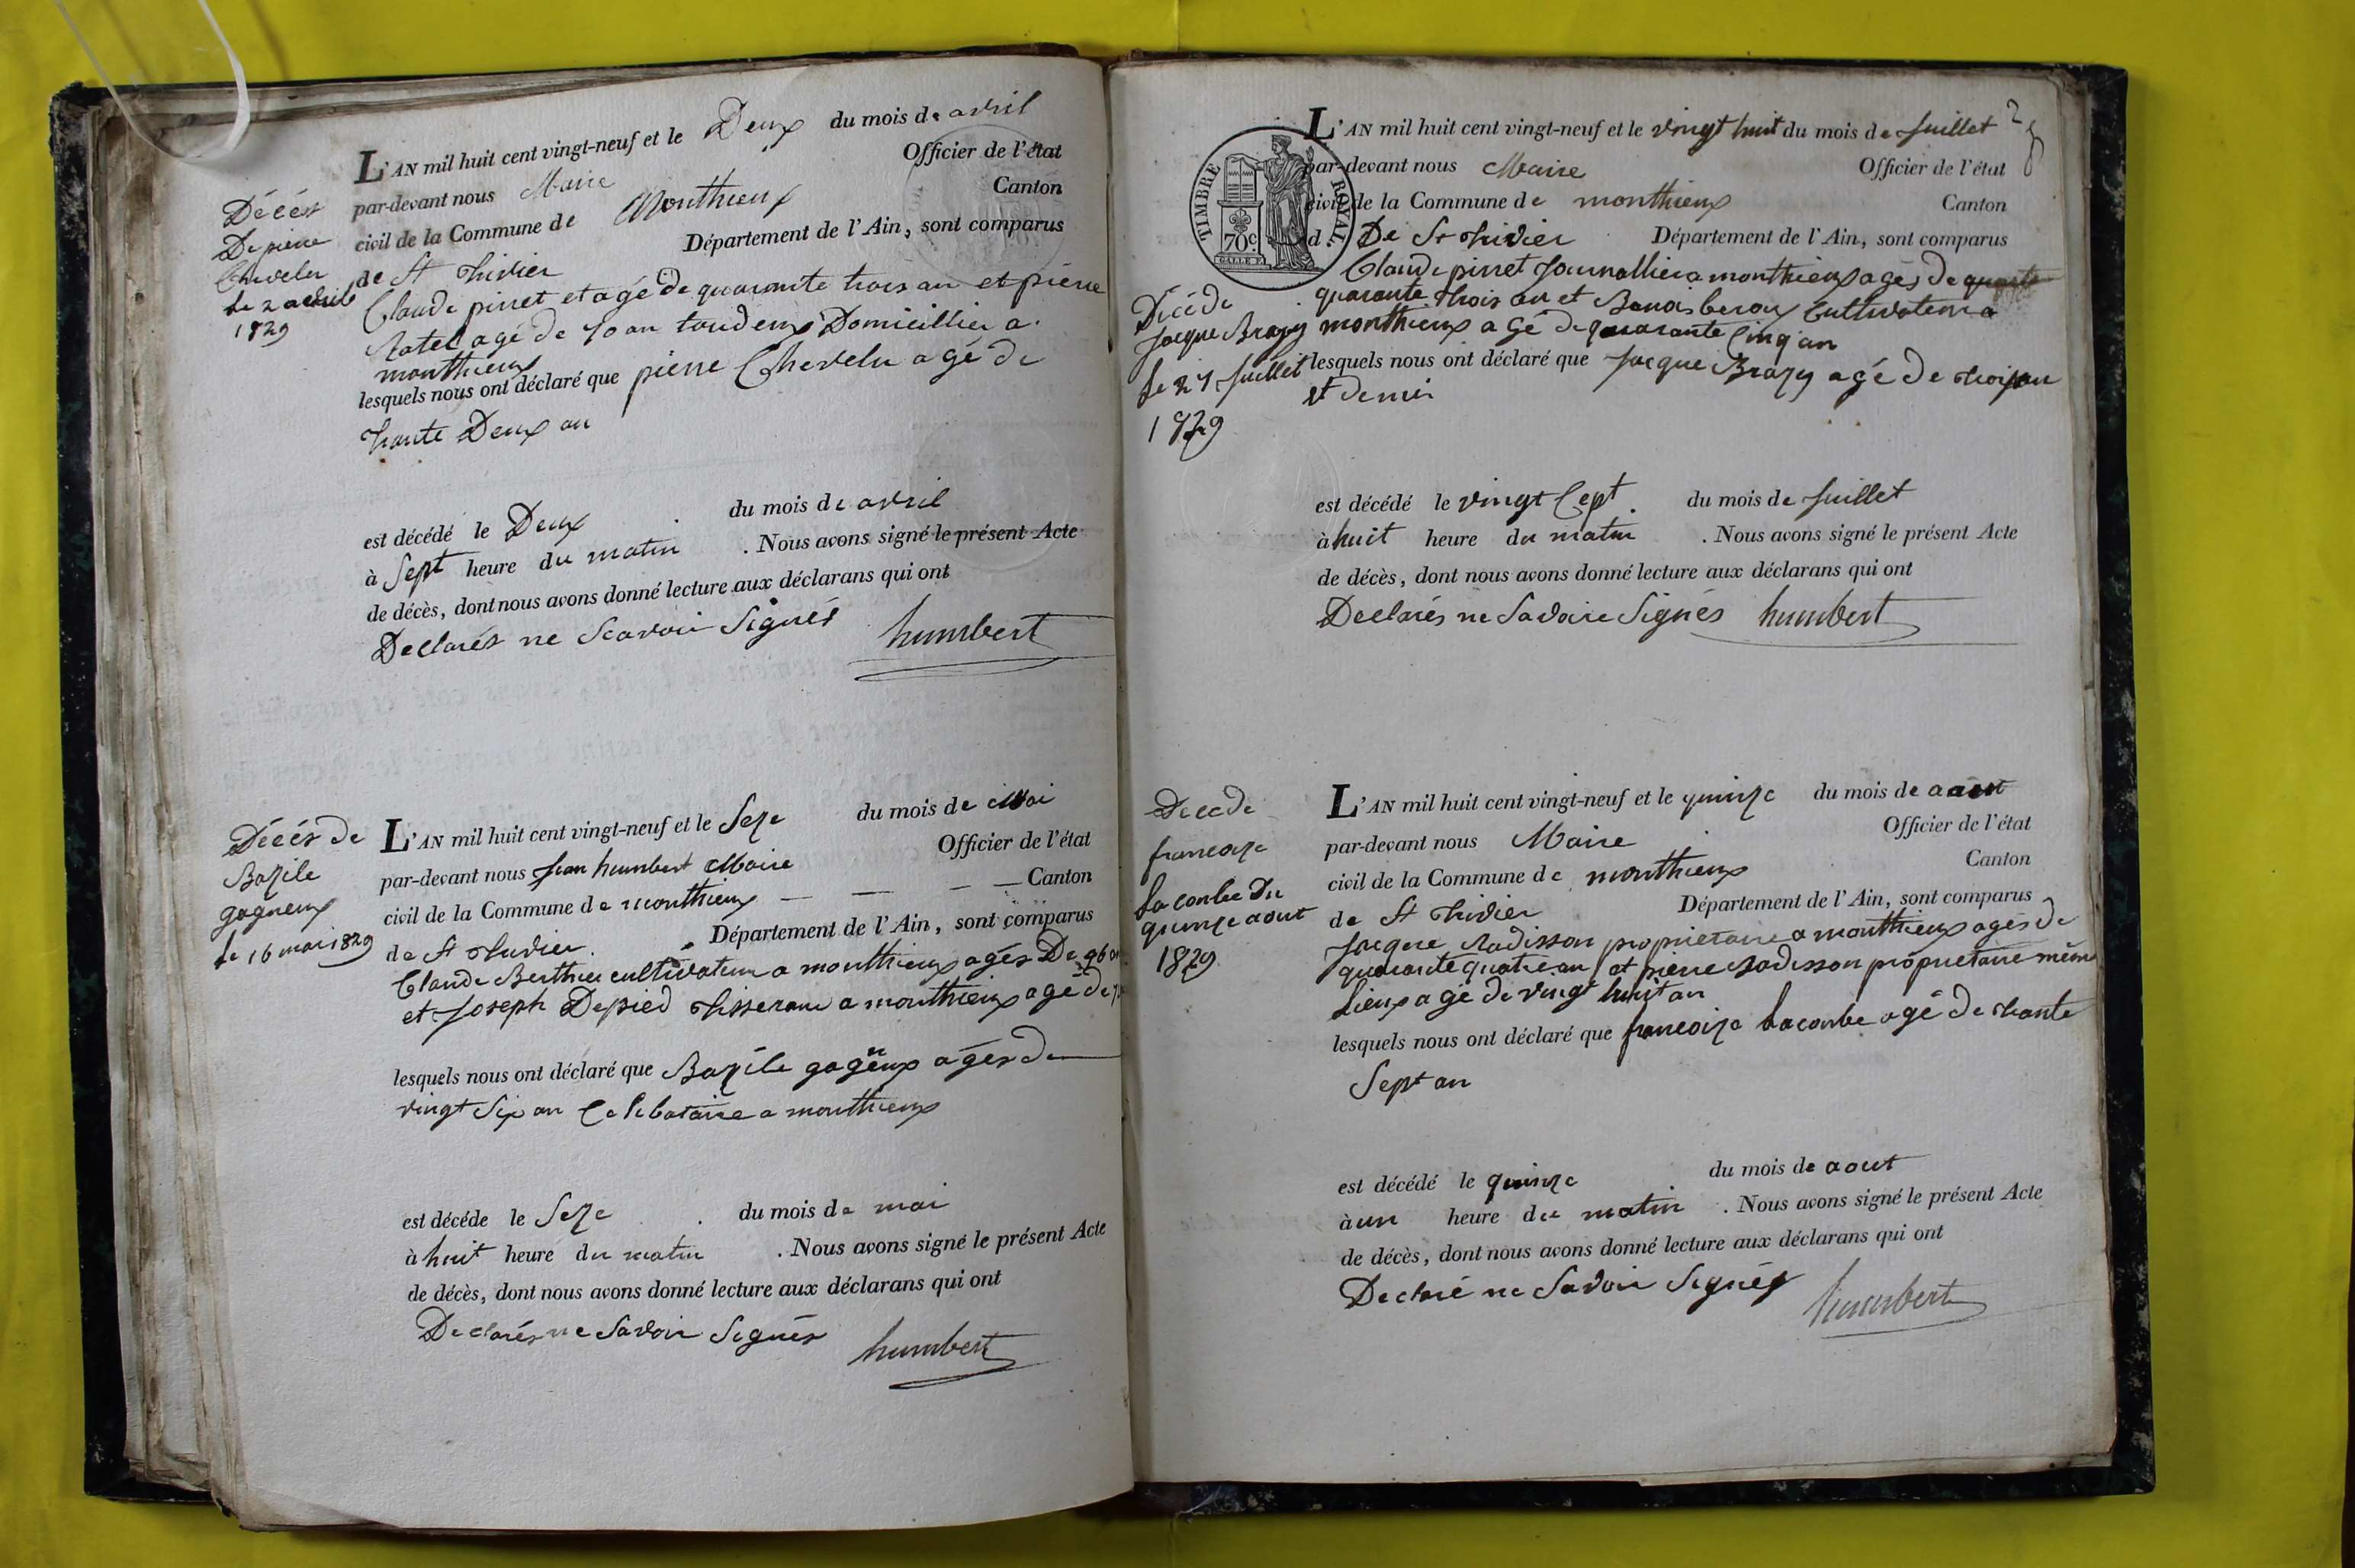 Décés
De pierre
Chevelu
le 2 avril
1829
L'AN mil huit cent vingt-neuf et le Deux du mois de avril
par-devant nous Maire Officier de l'état
civil de la Commune de Monthieux Canton
de St Thivier Département de l'Ain, sont comparus
Claude pirret et agé de quarante trois an et pierre
agé de 50 an toudeux Domicillier a
monthieux
lesquels nous ont déclaré que pierre Chevelu agé de
trante Deux an
est décédé le Deux du mois de avril
à Sept heure du matin . Nous avons signé le présent Acte
de décès, dont nous avons donné lecture aux déclarans qui ont
Declarés ne Scavoir Signés humbert
Décés de
Bazile
gagneux
le 16 mai 1829
L'AN mil huit cent vingt-neuf et le Seze du mois de Mai
par-devant nous Jean humbert Maire Officier de l'état
civil de la Commune de monthieux Canton
de St Thivier Département de l'Ain, sont comparus
Claude Berthier cultivateur a monthieux agés De
et Joseph Depied Tisserant a monthieux agé de
lesquels nous ont déclaré que Bazile gagneux agés de
vingt Six an Celibataire a monthieux
est décéde le Seze du mois de mai
à huit heure du matin . Nous avons signé le présent Acte
de décès, dont nous avons donné lecture aux déclarans qui ont
Declarés ne Savoir Signés humbert
TIMBRE ROYAL
70 c
Décéde
Jacque Brazy
le 27 Juillet
1829
L'AN mil huit cent vingt-neuf et le vingt huit du mois de Juillet
par-devant nous Maire Officier de l'état
civil de la Commune de monthieux Canton
d De St Thivier Département de l'Ain, sont comparus
Claude pirret Journallier a monthieux agés de
quarante trois an et Benoi beroux Cultivateur a
monthieux agé de quarante Cinq an
lesquels nous ont déclaré que Jacque Brazy agé de trois an
et demi
est décédé le vingt Cept du mois de Juillet
à huit heure du matin . Nous avons signé le présent Acte
de décès, dont nous avons donné lecture aux déclarans qui ont
Declarés ne Savoire Signés humbert
Decede
francoize
laconbe Du
quinze aout
1829
L'AN mil huit cent vingt-neuf et le quinze du mois de aout
par-devant nous Maire Officier de l'état
civil de la Commune de monthieux Canton
de St Thivier Département de l'Ain, sont comparus
Jacque Radisson proprietaire a monthieux agés de
quarante quatre an et pierre Radisson proprietaire même
Lieux agé de vingt huit an
lesquels nous ont déclaré que francoize Laconbe agé de trante
Sept an
est décédé le quinze du mois de aout
à un heure du matin . Nous avons signé le présent Acte
de décès, dont nous avons donné lecture aux déclarans qui ont
Declaré ne Savoir Signés humbert